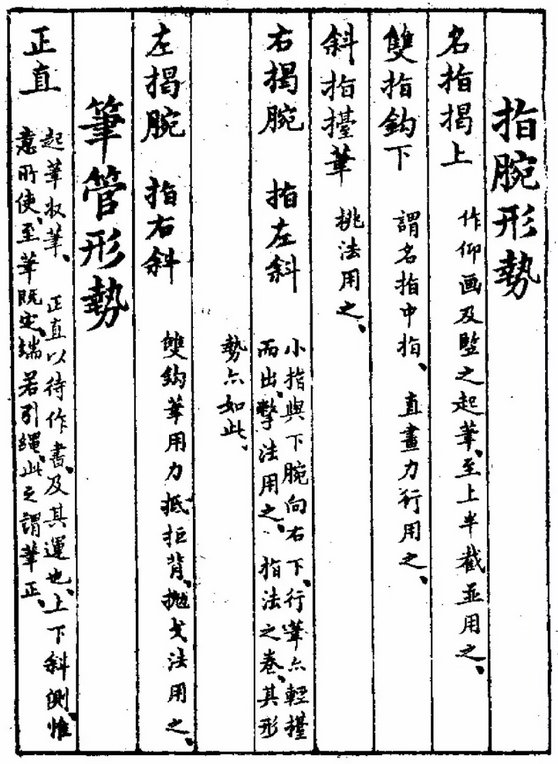 指腕形勢
名指揭上 作仰画及竪之起筆、至上半截並用之、
雙指鈎下 謂名指中指、直畫力行用之、
斜指擡筆 挑法用之、
右揭腕 指左斜 小指與下腕向右下、行筆亦輕擡
而出、撆法用之、指法之卷、其形
勢亦如此、
左揭腕 指右斜 雙鈎筆用力抵拒背、抛戈法用之、
筆管形勢
正直 起筆收筆、正直以待作書、及其運也、上下斜側、惟
意所使、至筆既定、端若引繩、此之謂筆正、